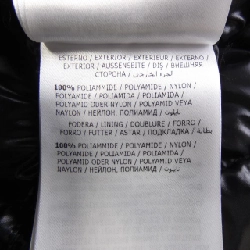 ESTERNO / EXTERIOR / EXTERIEUR / EXTERNO /
EXTERIOR / AUSSENSEITE / DIŞ / ВНЕШНЯЯ
СТОРОНА /
100% POLIAMMIDE / POLYAMIDE / NYLON /
POLYAMIDE / POLIAMIDA / POLIAMIDA /
POLYAMID ODER NYLON / POLYAMID VEYA
NAYLON / НЕЙЛОН, ПОЛИАМИД /
FODERA / LINING / DOUBLURE / FORRO /
FORRO / FUTTER / ASTAR / ПОДКЛАДКА / بطانة
100% POLIAMMIDE / POLYAMIDE / NYLON /
POLYAMIDE / POLIAMIDA / POLIAMIDA /
POLYAMID ODER NYLON / POLYAMID VEYA
NAYLON / НЕЙЛОН, ПОЛИАМИД /